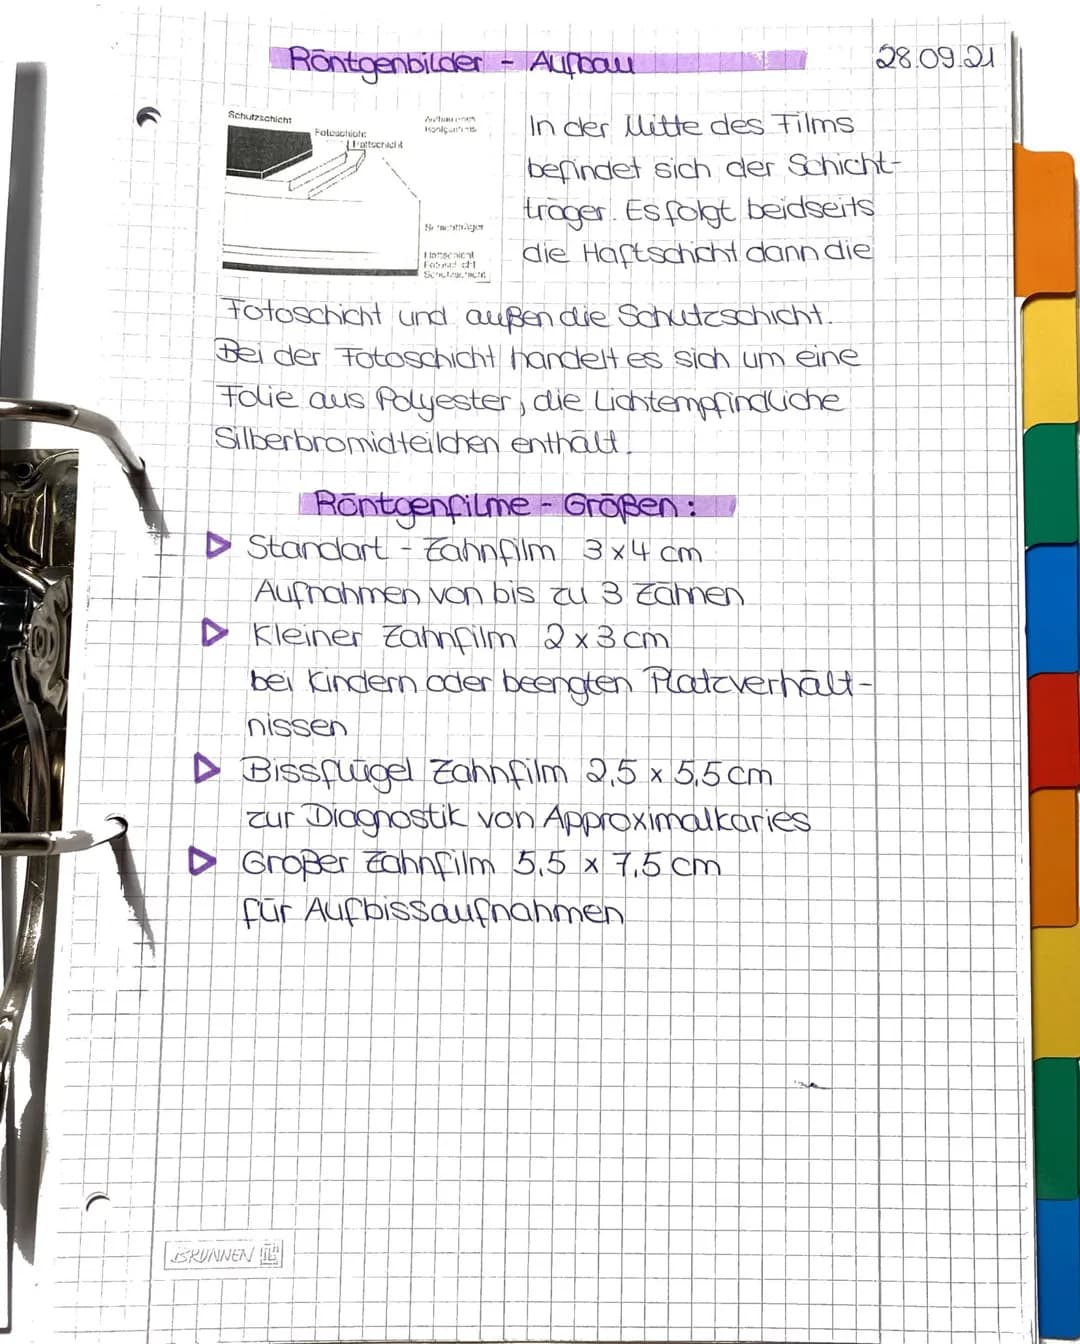 Röntgenbilder - Aufbau
28.09.21
Schutzschicht
Fotoschicht
Haftschicht
In der Mitte des Films
befindet sich der Schicht-
träger. Es folgt beidseits
die Haftschicht dann die
Schichtträger
Haftschicht
Fotoschicht
Schutzschicht
Fotoschicht und außen die Schutzschicht.
Bei der Fotoschicht handelt es sich um eine
Folie aus Polyester, die Lichtempfindliche
Silberbromidteilchen enthält.
Röntgenfilme - Größen:
Standart - Zahnfilm 3x4 cm
Aufnahmen von bis zu 3 Zähnen
Kleiner Zahnfilm 2x3 cm
bei Kindern oder beengten Platzverhält-
nissen
Bissflügel Zahnfilm 2,5 x 5,5 cm
zur Diagnostik von Approximalkaries
Großer Zahnfilm 5,5 x 7,5 cm
für Aufbissaufnahmen
BRUNNEN